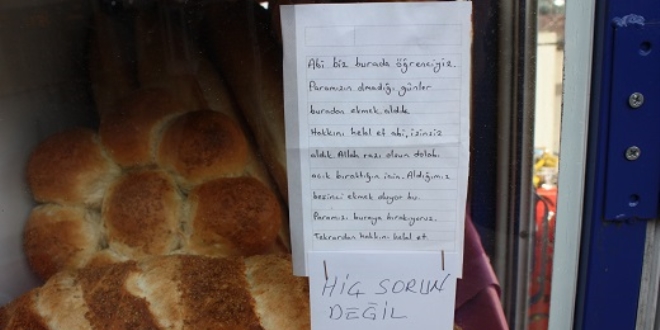 Abi biz burada öğrenciyiz.
Paramızın olmadığı günler
buradan ekmek aldık
Hakkını helal et abi, izinsiz
aldık. Allah razı olsun dolabı
açık bıraktığın için. Aldığımız
beşinci ekmek oluyor bu.
Paramızı buraya bırakıyoruz.
Tekrardan hakkını helal et.
HİÇ SORUN
DEĞİL